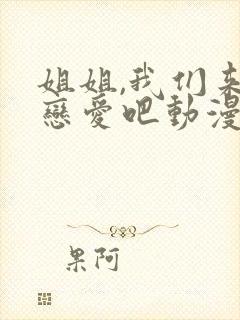 姐姐,我们来
戀愛吧動漫
果阿